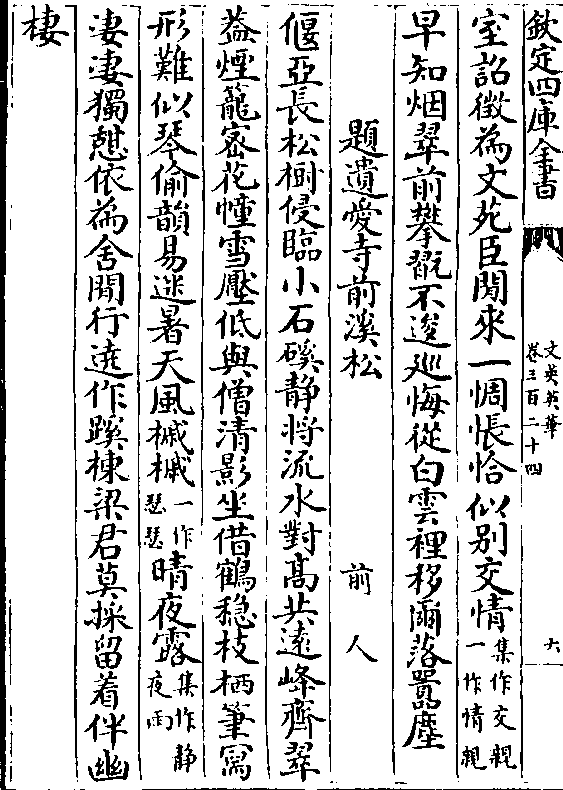 欽定四庫全書
文苑英華
卷三百二十四
六
室詔徵為文苑臣聞來一惆悵恰似别交情集作交親一作情親
早知烟翠前攀翫不逡巡悔從白雲裡移爾落囂塵
題遺愛寺前溪松
前人
偃亞長松樹侵臨小石磎静將流水對高共遠峰齊翠
葢煙籠宻花幢雪壓低與僧清影坐借鶴穏枝栖筆寫
形難似琴偷韻易迷暑天風槭槭一作瑟瑟晴夜露集作静夜雨
淒淒獨憇依為舍閒行遶作蹊棟梁君莫採留着伴幽
棲